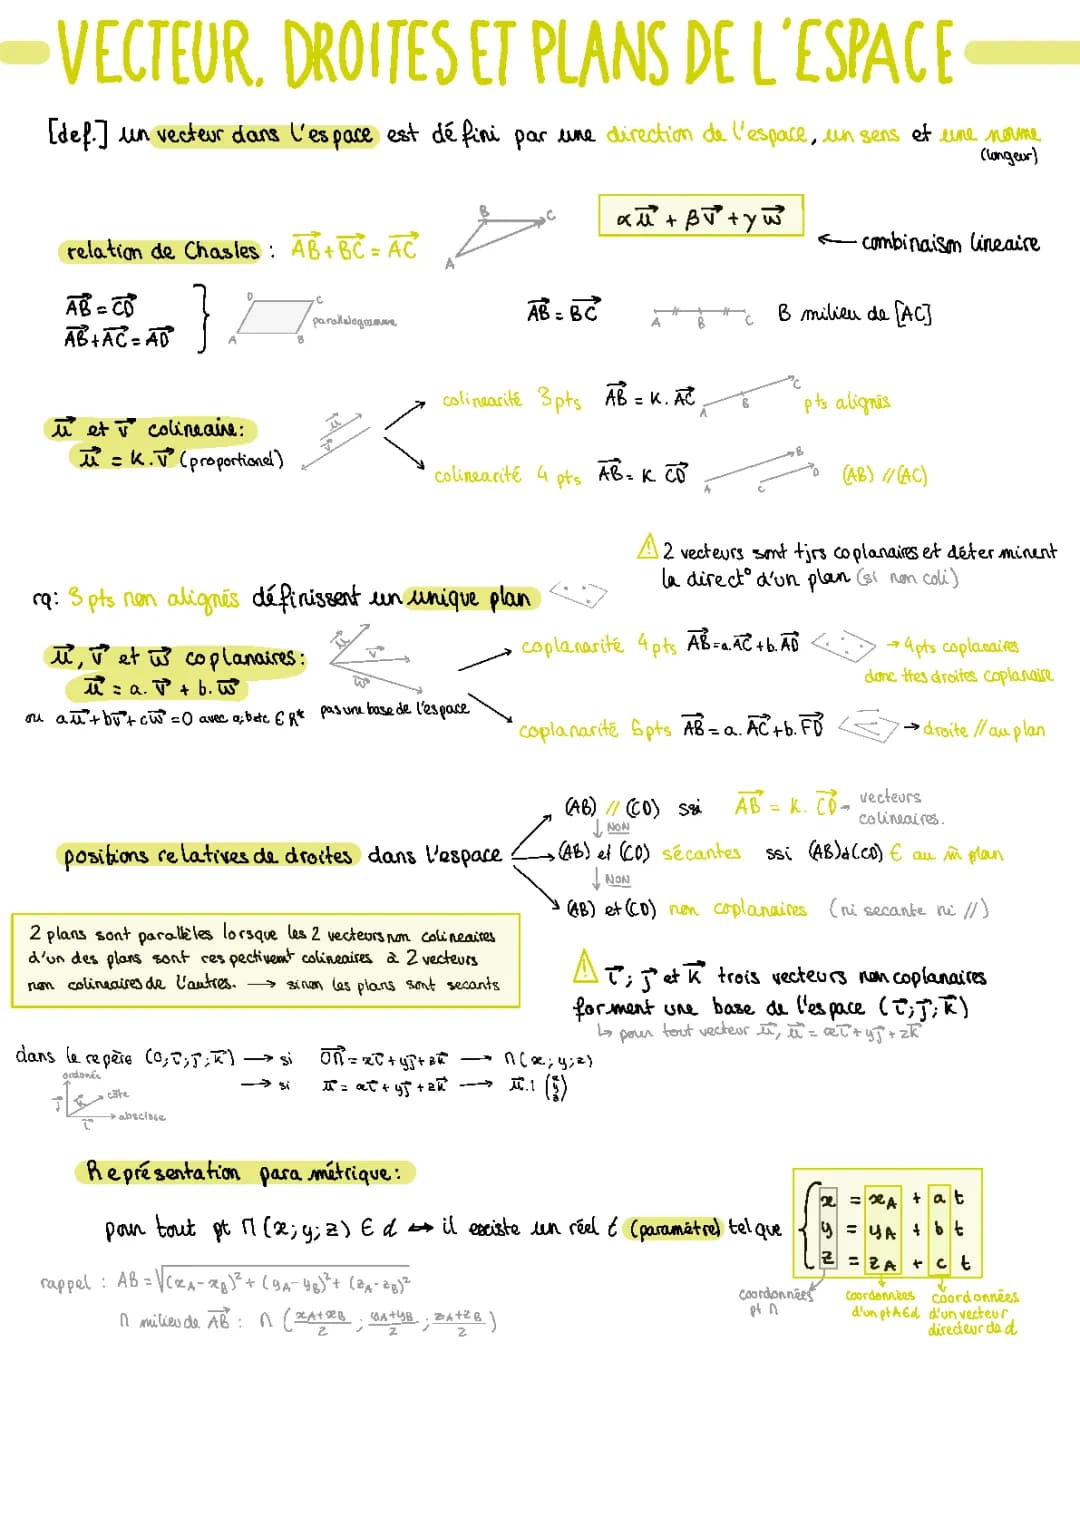 VECTEUR, DROITES ET PLANS DE L'ESPACE
[def.] un vecteur dans l'espace est défini par une direction de l'espace, un sens et une norme
(longeur)
relation de Chasles : AB + BC = AC
A B C
αu + βv + γw
← combinaison lineaire
AB = CD
AB + AC = AD
A B C D
parallelogramme
AB = BC
A B C
B milieu de [AC]
u et v colineaire:
u = K.v (proportionel)
u
v
colinearité 3 pts AB = K. AC
A B C
pts alignés
colinearité 4 pts AB = K CD
A B C D
(AB) // (AC)
⚠ 2 vecteurs sont tjrs coplanaires et déterminent
la direct° d'un plan (si non coli)
rq: 3 pts non alignés définissent un unique plan
u, v et w coplanaires:
u = a. v + b. w
ou au + bv + cw = 0 avec a; b et c ∈ R*
u
v
w
pas une base de l'espace
coplanarité 4 pts AB = a. AC + b. AD
→ 4 pts coplanaires
donc ttes droites coplanaire
coplanarité 6 pts AB = a. AC + b. FD
→ droite // au plan
positions relatives de droites dans l'espace
(AB) // (CD) ssi AB = K. CD → vecteurs
colineaires.
↓ NON
(AB) et (CD) sécantes ssi (AB)&(CD) ∈ au m̂ plan
↓ NON
(AB) et (CD) non coplanaires (ni secante ni //)
2 plans sont parallèles lorsque les 2 vecteurs non colineaires
d'un des plans sont respectivemt colineaires à 2 vecteurs
non colineaires de l'autres. → sinon les plans sont secants
⚠ i; j et k trois vecteurs non coplanaires
forment une base de l'espace (i; j; k)
↳ pour tout vecteur u, u = xi + yj + zk
dans le repère (O; i; j; k) → si OM = xi + yj + zk → M(x; y; z)
→ si u = xi + yj + zk → u ! (x y z)
ordonnée
j
k
côte
i
abscisse
Représentation paramétrique:
pour tout pt M (x; y; z) ∈ d ↔ il existe un réel t (paramètre) tel que
x = xA + a t
y = yA + b t
z = zA + c t
coordonnées
pt M
coordonnées
d'un pt A∈d
coordonnées
d'un vecteur
directeur de d
rappel : AB = √(xA - xB)² + (yA - yB)² + (zA - zB)²
M milieu de AB : M (xA + xB / 2 ; yA + yB / 2 ; zA + zB / 2)